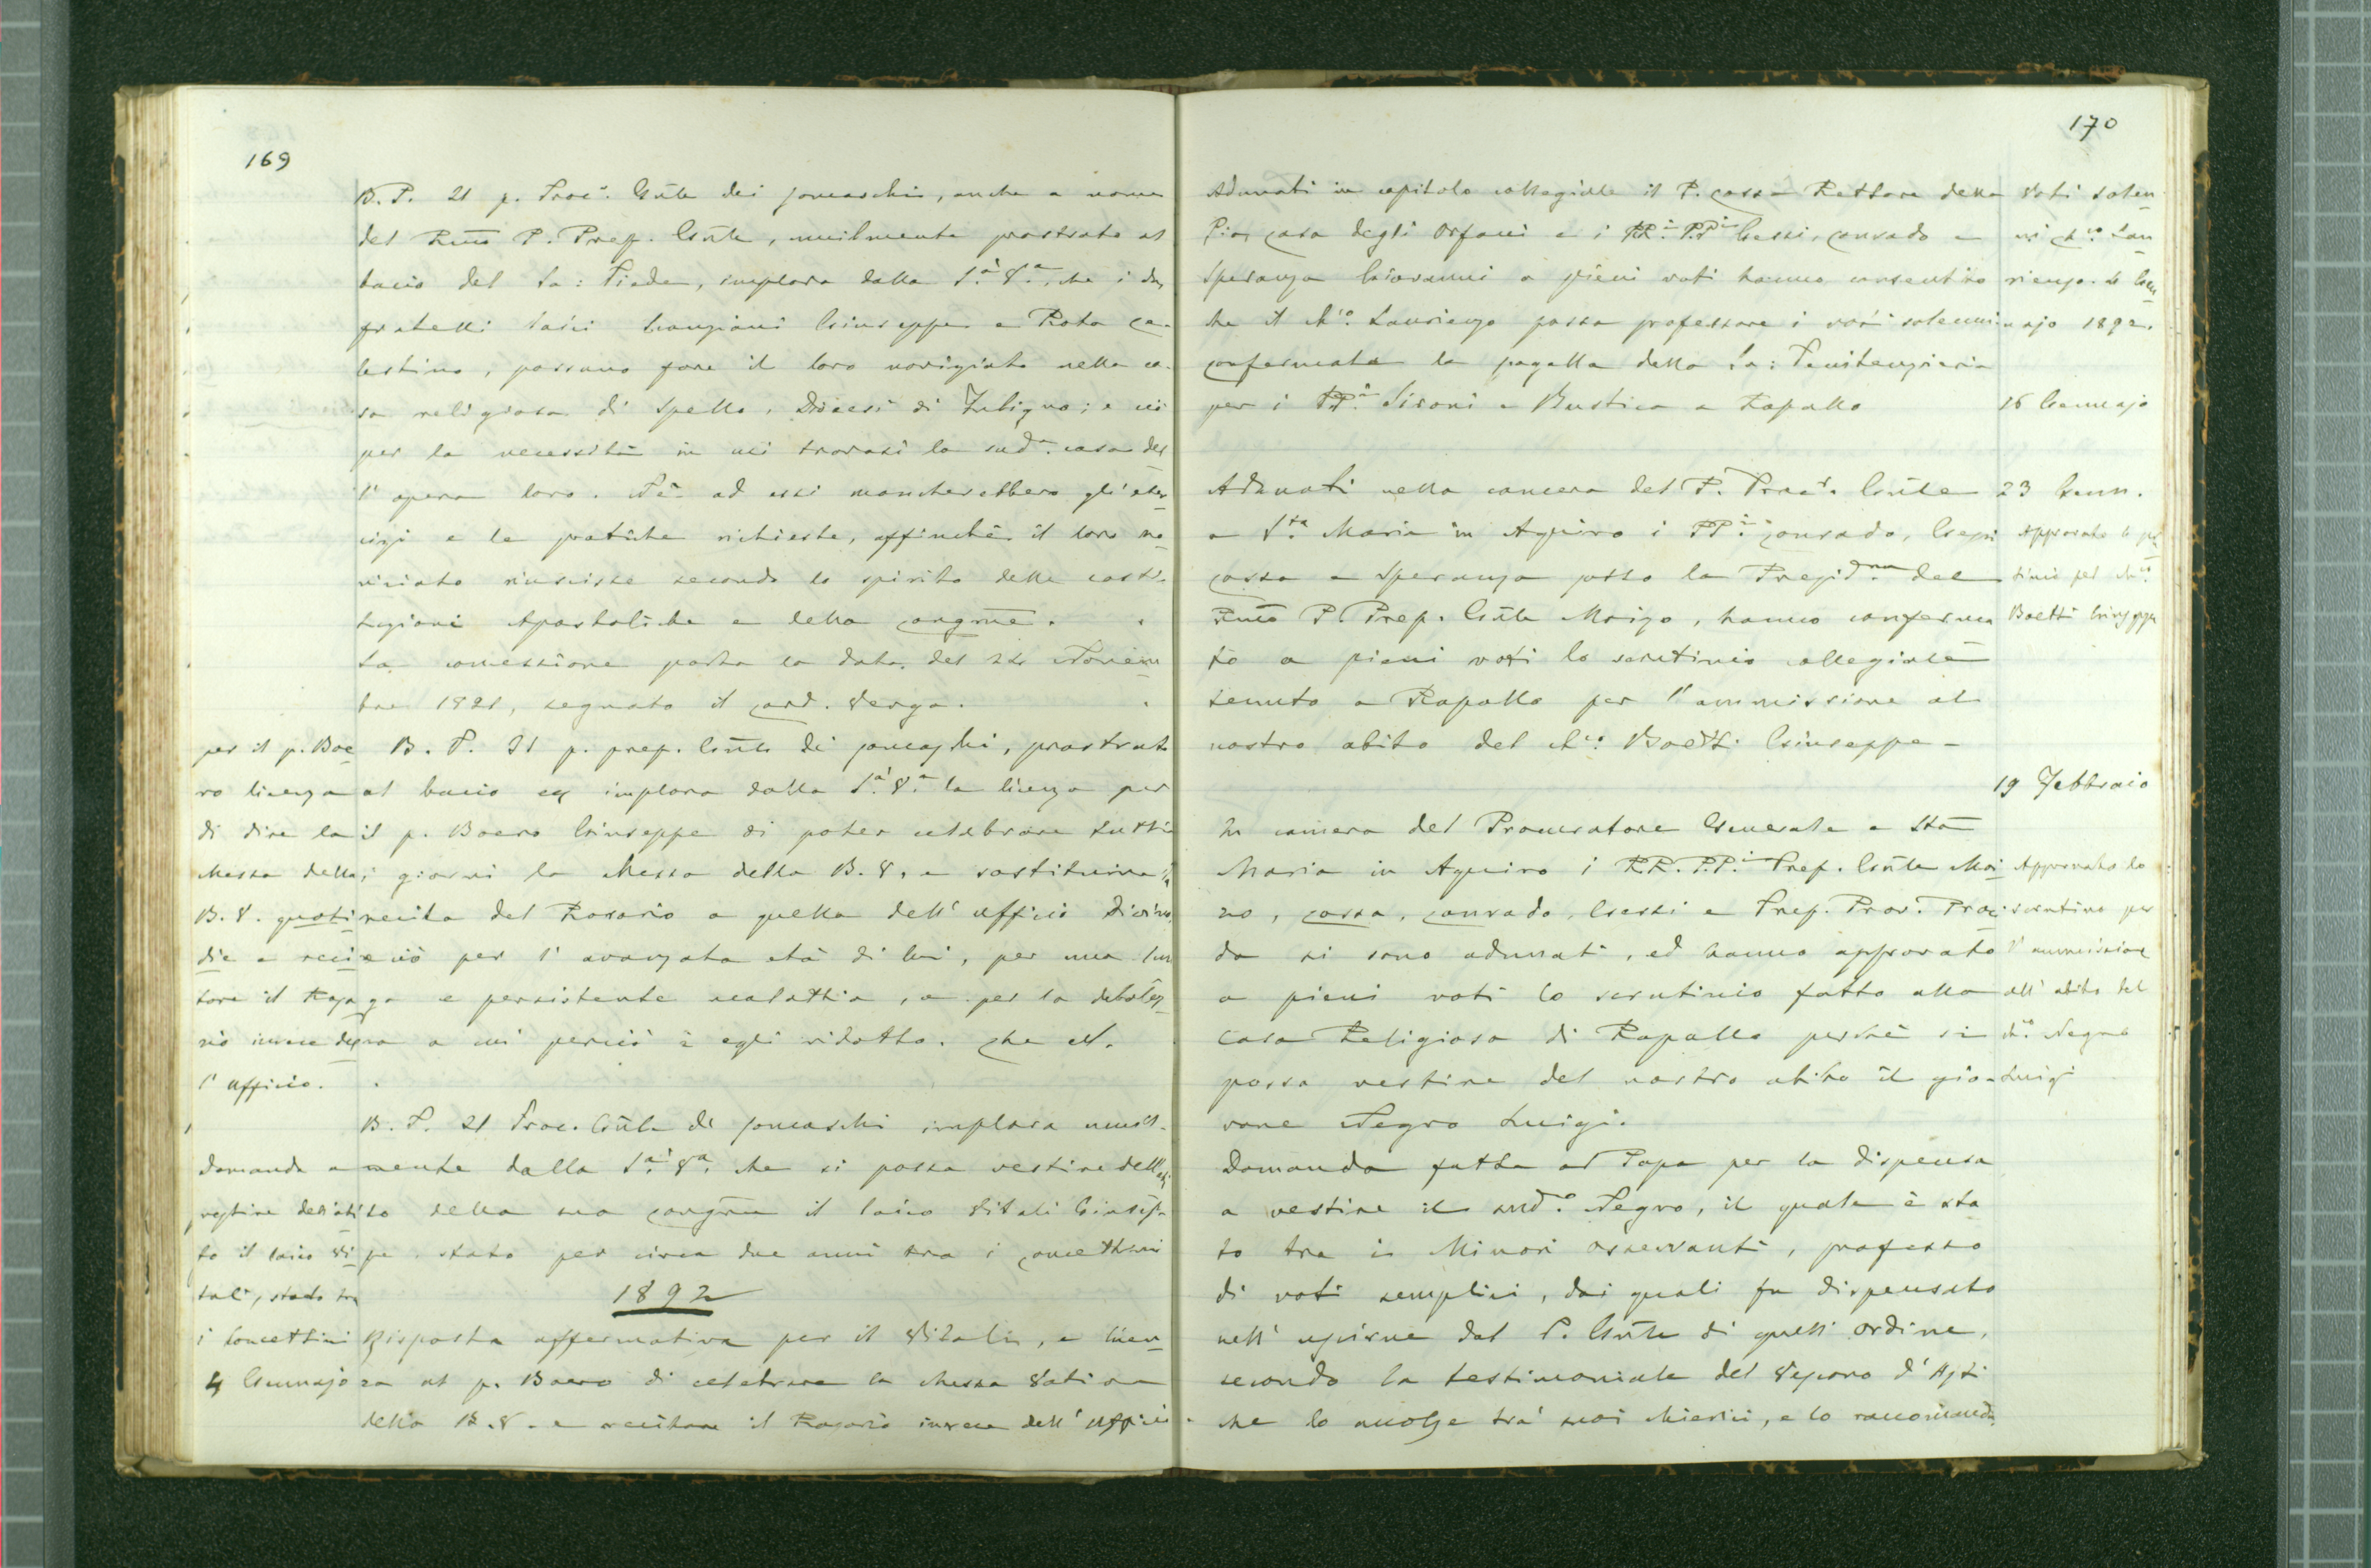 169
B. P. Il p. Proc.e Gnle dei Somaschi, anche a nome
del Rmo P. Prep. Gnle, umilmente prostrato al
bacio del Sa: Piede, implora dalla S.a V.a, che i due
fratelli laici Giuseppe e Rota Ce-
lestino, possano fare il loro noviziato nella ca-
sa religiosa di Spello, Diocesi di Fuligno; e ciò
per la necessità in cui trovasi la sud.a casa del
l'opera loro. Nè ad essi mancherebbero gli eser
cizi e le pratiche richieste, affinchè il loro no
viziato riuscisse secondo lo spirito delle costi-
tuzioni Apostoliche e della Congrne.
La concessione porta la data del 24 Novem
bre 1891, segnato il Card. Verga.
per il p. Boe
ro licenza
di dire la
Messa della
B. V. quoti
die e reci
tare il Rosa
rio invece del
l'Ufficio.
B. P. Il p. prep. Gnle dei Somaschi, prostrato
al bacio implora dalla S.a V.a la licenza per
il p. Boero Giuseppe di poter celebrare tutti
i giorni la Messa della B. V. e sostituire la
recita del Rosario a quella dell'Ufficio divino,
e ciò per l'avanzata età di lui, per una lun
ga e persistente malattia, e per la debolez
za a cui perciò è egli ridotto. Che
B. P. Il Proc. Gnle dei Somaschi implora umil-
mente dalla S.a V.a che si possa vestire dell'abi
to della sua Congrne il laico Vitali Giusep-
pe stato per circa due anni tra i Concettini
Domanda a
vestire dell'abi
to il laico Vi
tali, stato tra
i Concettini
1892
4 Gennajo
Risposta affermativa per il Vitali, e licen
za al p. Boero di celebrare la Messa Votiva
della B. V. e recitare il Rosario invece dell'Ufficio.
170
Adunati in capitolo collegiale il P. Cossa Rettore della
Pia Casa degli Orfani e i RR.i PP.i Gessi, Conrado e
Speranza Giovanni a pieni voti hanno consentito
che il Ch.co Laurienzo possa professare i voti solenni.
Voti solen
ni Ch.co Lau
rienzo. Gen
najo 1892.
Confermata la pagella della Sa: Penitenzieria
per i PP.i Sironi e Bustica a Rapallo
16 Gennajo
Adunati nella camera del P. Proc.e Gnle
a S.ta Maria in Aquiro i PP.i Conrado, Gessi
Cossa e Speranza sotto la Presid.nza del
Rmo P Prep. Gnle Moizo, hanno conferma
to a pieni voti lo scrutinio collegiale
tenuto a Rapallo per l'ammissione al
nostro abito del Ch.co Boetti Giuseppe -
23 Genn.
Approvato lo scru
tinio pel Ch.co
Boetti Giuseppe
19 Febbraio
In camera del Procuratore Generale a Sta
Maria in Aquiro i RR. PP.i Prep. Gnle Moi
zo, Cossa, Conrado, Gessi e Prep. Prov. Proci
da si sono adunati, ed hanno approvato
a pieni voti lo scrutinio fatto alla
Casa Religiosa di Rapallo perchè si
possa vestire del nostro abito il gio-
vane Negro Luigi.
Approvato lo
scrutinio per
l'ammissione
all'abito del
Ch.co Negro
Luigi
Domanda fatta al Papa per la dispensa
a vestire il sud.o Negro, il quale è sta
to tra i Minori Osservanti, professo
di voti semplici, dai quali fu dispensato
nell'uscirne dal P. Gnle di quell'ordine,
secondo la testimoniale del Vescovo d'Asti
che lo accolse tra' suoi chierici, e lo raccomanda